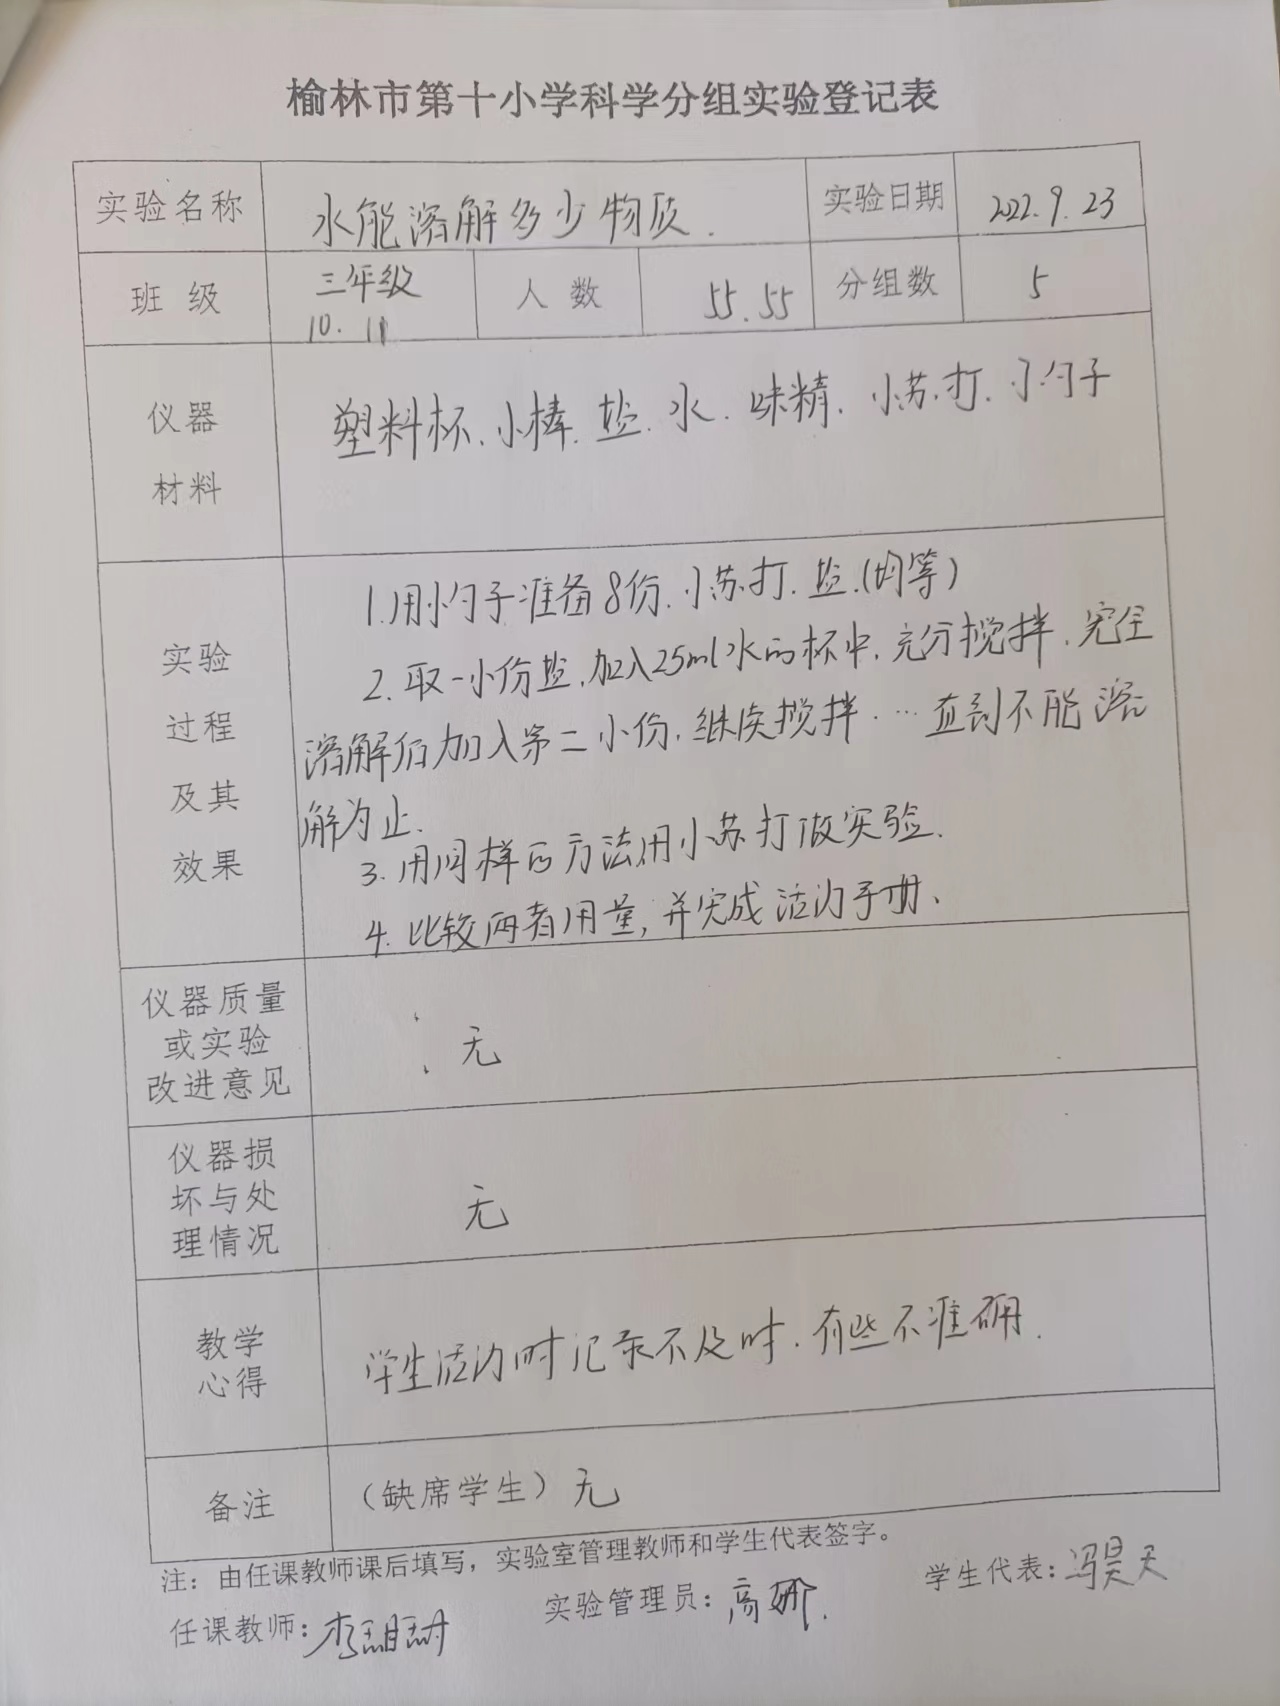 榆林市第十小学科学分组实验登记表
实验名称 水能溶解多少物质. 实验日期 2022.9.23
班级 三年级 人数 55.55 分组数 5
10.11
仪器 塑料杯、小棒、盐、水、味精、小苏打、小勺子
材料
1.用小勺子准备8份、小苏打、盐.(均等)
实验 2.取一小份盐,加入25ml水的杯中,充分搅拌,完全
过程 溶解后加入第二小份,继续搅拌…直到不能溶
及其 解为止.
效果 3.用同样的方法用小苏打做实验.
4.比较两者用量,并完成活动手册、
仪器质量
或实验 无
改进意见
仪器损
坏与处 无
理情况
教学 学生活动时记录不及时.有些不准确.
心得
备注 （缺席学生）无
注：由任课教师课后填写，实验室管理教师和学生代表签字。
任课教师: 实验管理员：高娜. 学生代表:冯昊天